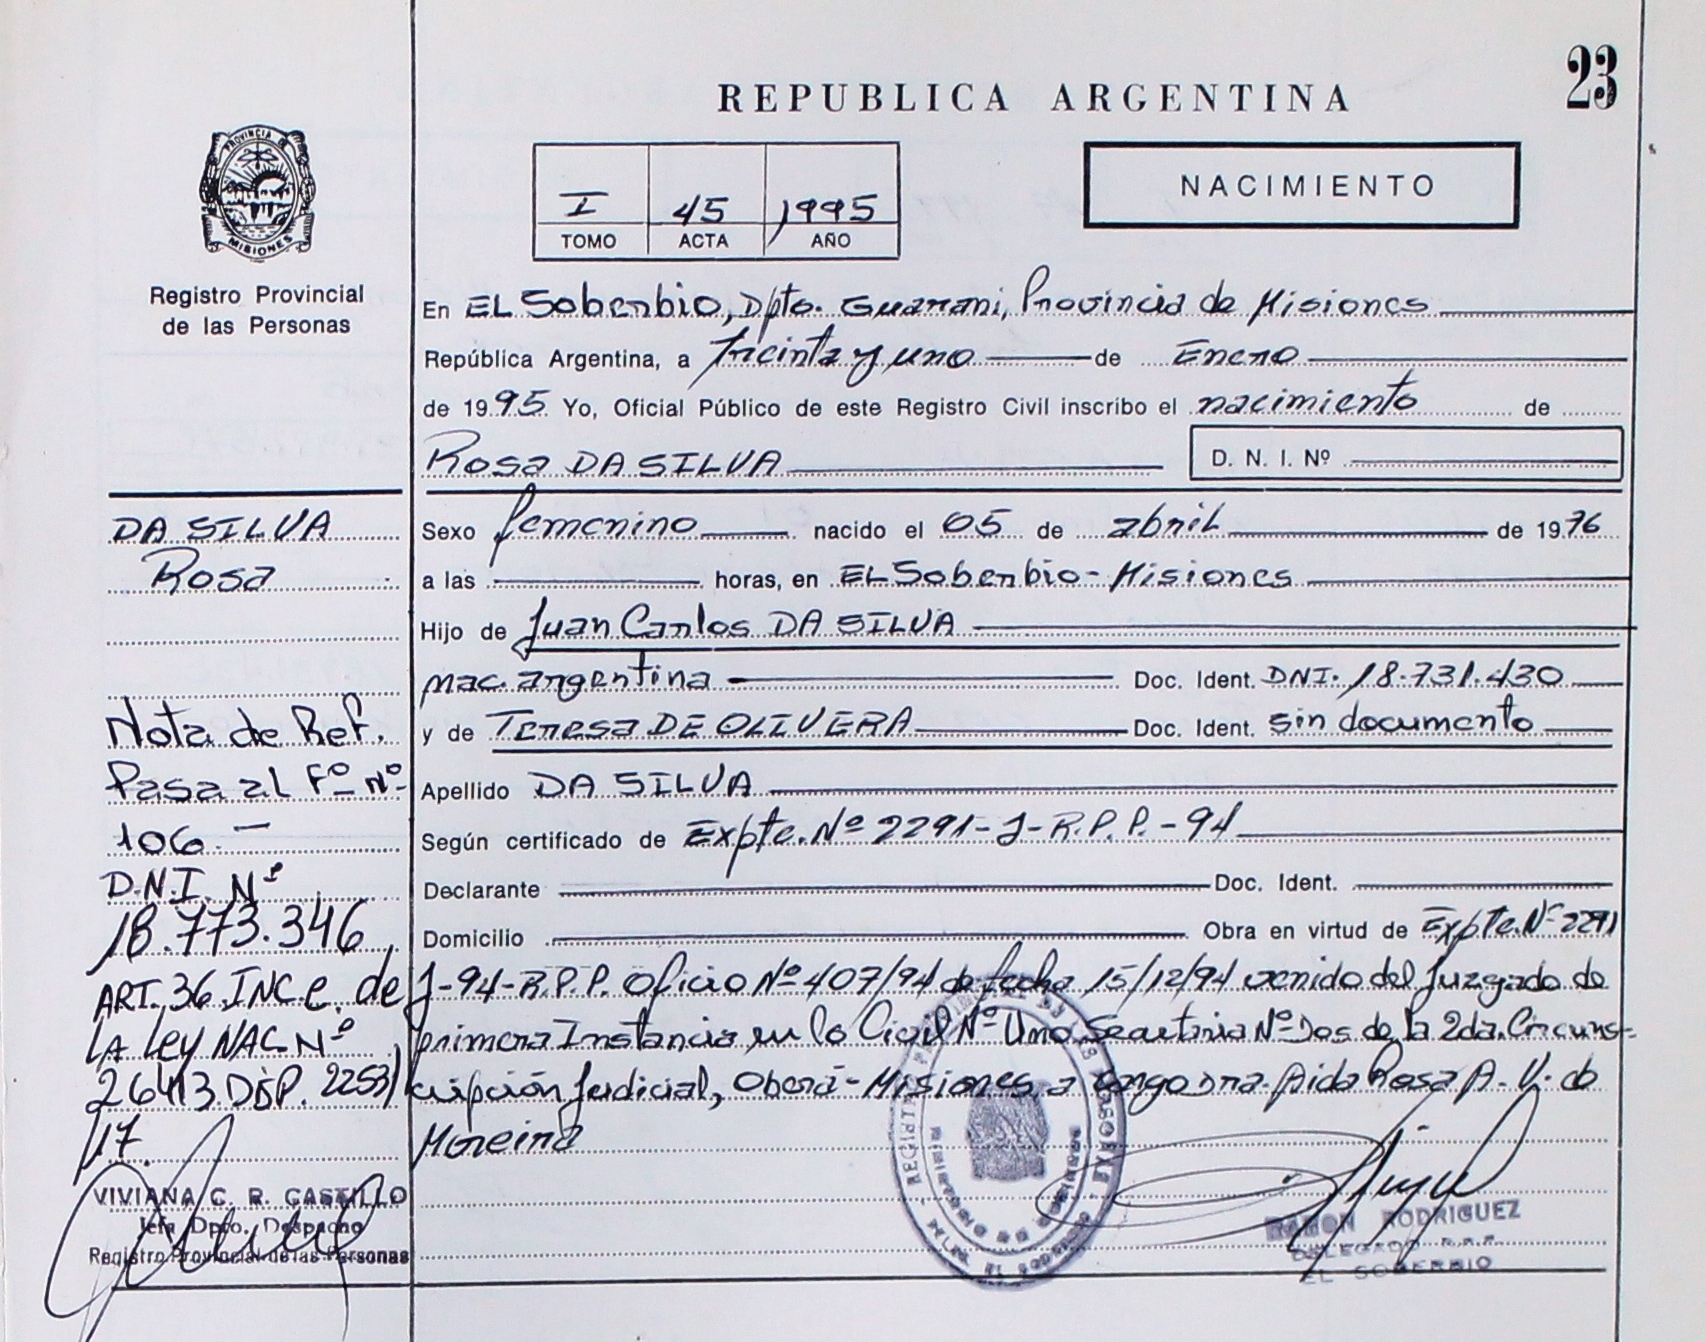 23
REPUBLICA ARGENTINA
NACIMIENTO
I 45 1995
TOMO ACTA AÑO
PROVINCIA DE
MISIONES
Registro Provincial
de las Personas
En EL Soberbio, Dpto. Guarani, Provincia de Misiones
República Argentina, a treinta y uno de Enero
de 1995 Yo, Oficial Público de este Registro Civil inscribo el nacimiento de
Rosa DA SILVA D. N. I. Nº
Sexo femenino nacido el 05 de abril de 1976
a las horas, en EL Soberbio - Misiones
Hijo de Juan Carlos DA SILVA
nac. argentina Doc. Ident. DNI. 18.731.430
y de Teresa DE OLIVERA Doc. Ident. sin documento
Apellido DA SILVA
Según certificado de Expte. Nº 2291-J-R.P.P.-94
Declarante Doc. Ident.
Domicilio Obra en virtud de Expte. Nº 2291
J-94-R.P.P. Oficio Nº 407/94 de fecha 15/12/94 venido del Juzgado de
primera Instancia en lo Civil Nº Uno Secretaria Nº Dos de la 2da. Circuns-
cripción Judicial, Oberá - Misiones, a cargo Dra. Aida Rosa A. V. de
Moreira
DA SILVA
Rosa
Nota de Ref.
Pasa al Fº Nº
106.-
D.N.I. Nº
18.773.346
ART. 36 INC e. de
LA Ley NAC Nº
26413 DISP. 2253/
17.
VIVIANA C. R. CASTILLO
Jefa Dpto. Despacho
Registro Provincial de las Personas
RAMON RODRIGUEZ
DELEGADO R.P.P.
EL SOBERBIO